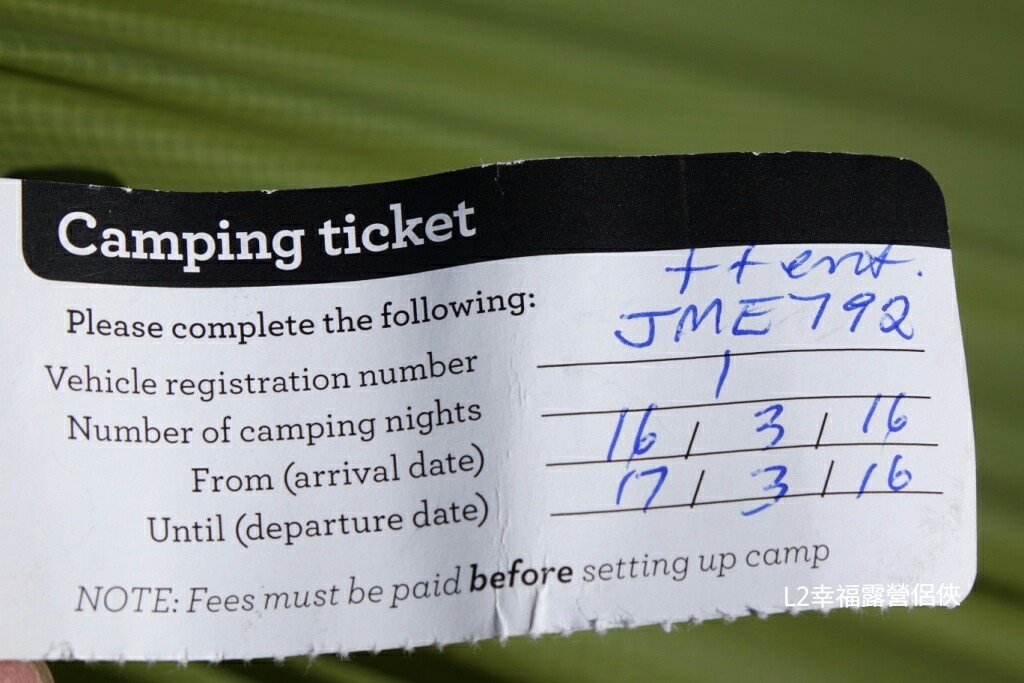 Camping ticket
+ tent.
Please complete the following:
JME792
Vehicle registration number
1
Number of camping nights
16 / 3 / 16
From (arrival date)
17 / 3 / 16
Until (departure date)
NOTE: Fees must be paid before setting up camp
L2幸福露營侶俠